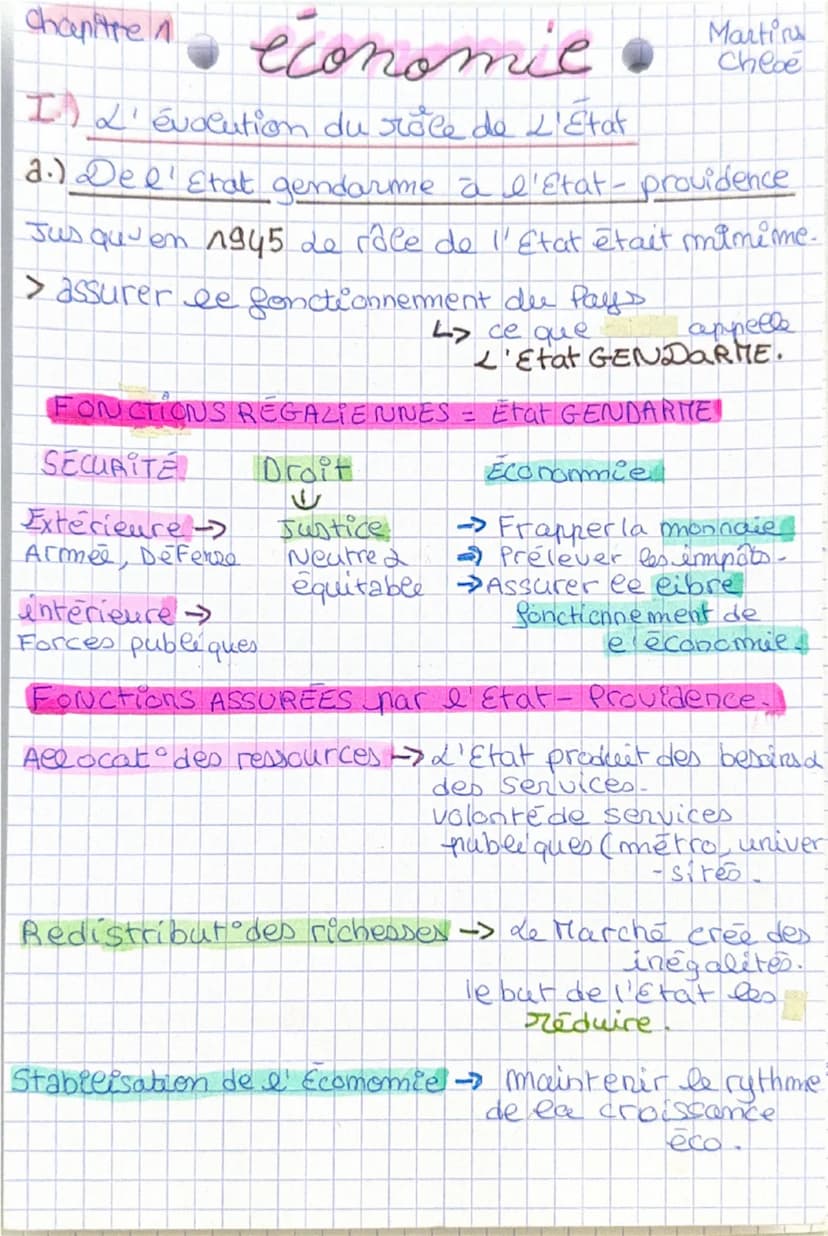 Chapitre 1
économie
Martins
Chloé
I.) L'évolution du rôle de L'État
a.) De l'Etat gendarme à l'Etat-providence
Jusqu'en 1945 le rôle de l'Etat était minime.
> assurer le fonctionnement du Pays
↳ ce que appelle
L'Etat GENDARME.
FONCTIONS RÉGALIENNES = État GENDARME
SÉCURITÉ Droit Économie
↓
Extérieure → Justice → Frapper la monnaie
Armée, Défense Neutre & → Prélever les impôts.
équitable → Assurer le libre
intérieure → fonctionnement de
Forces publiques l'économie.
FONCTIONS ASSURÉES par l'Etat-Providence.
Allocat° des ressources → L'Etat produit des besoins &
des services.
volonté de services
publiques (métro, univer
-sités.
Redistribut° des richesses → Le Marché crée des
inégalités.
le but de l'Etat les
réduire.
Stabilisation de l'Économie → maintenir le rythme
de la croissance
éco.